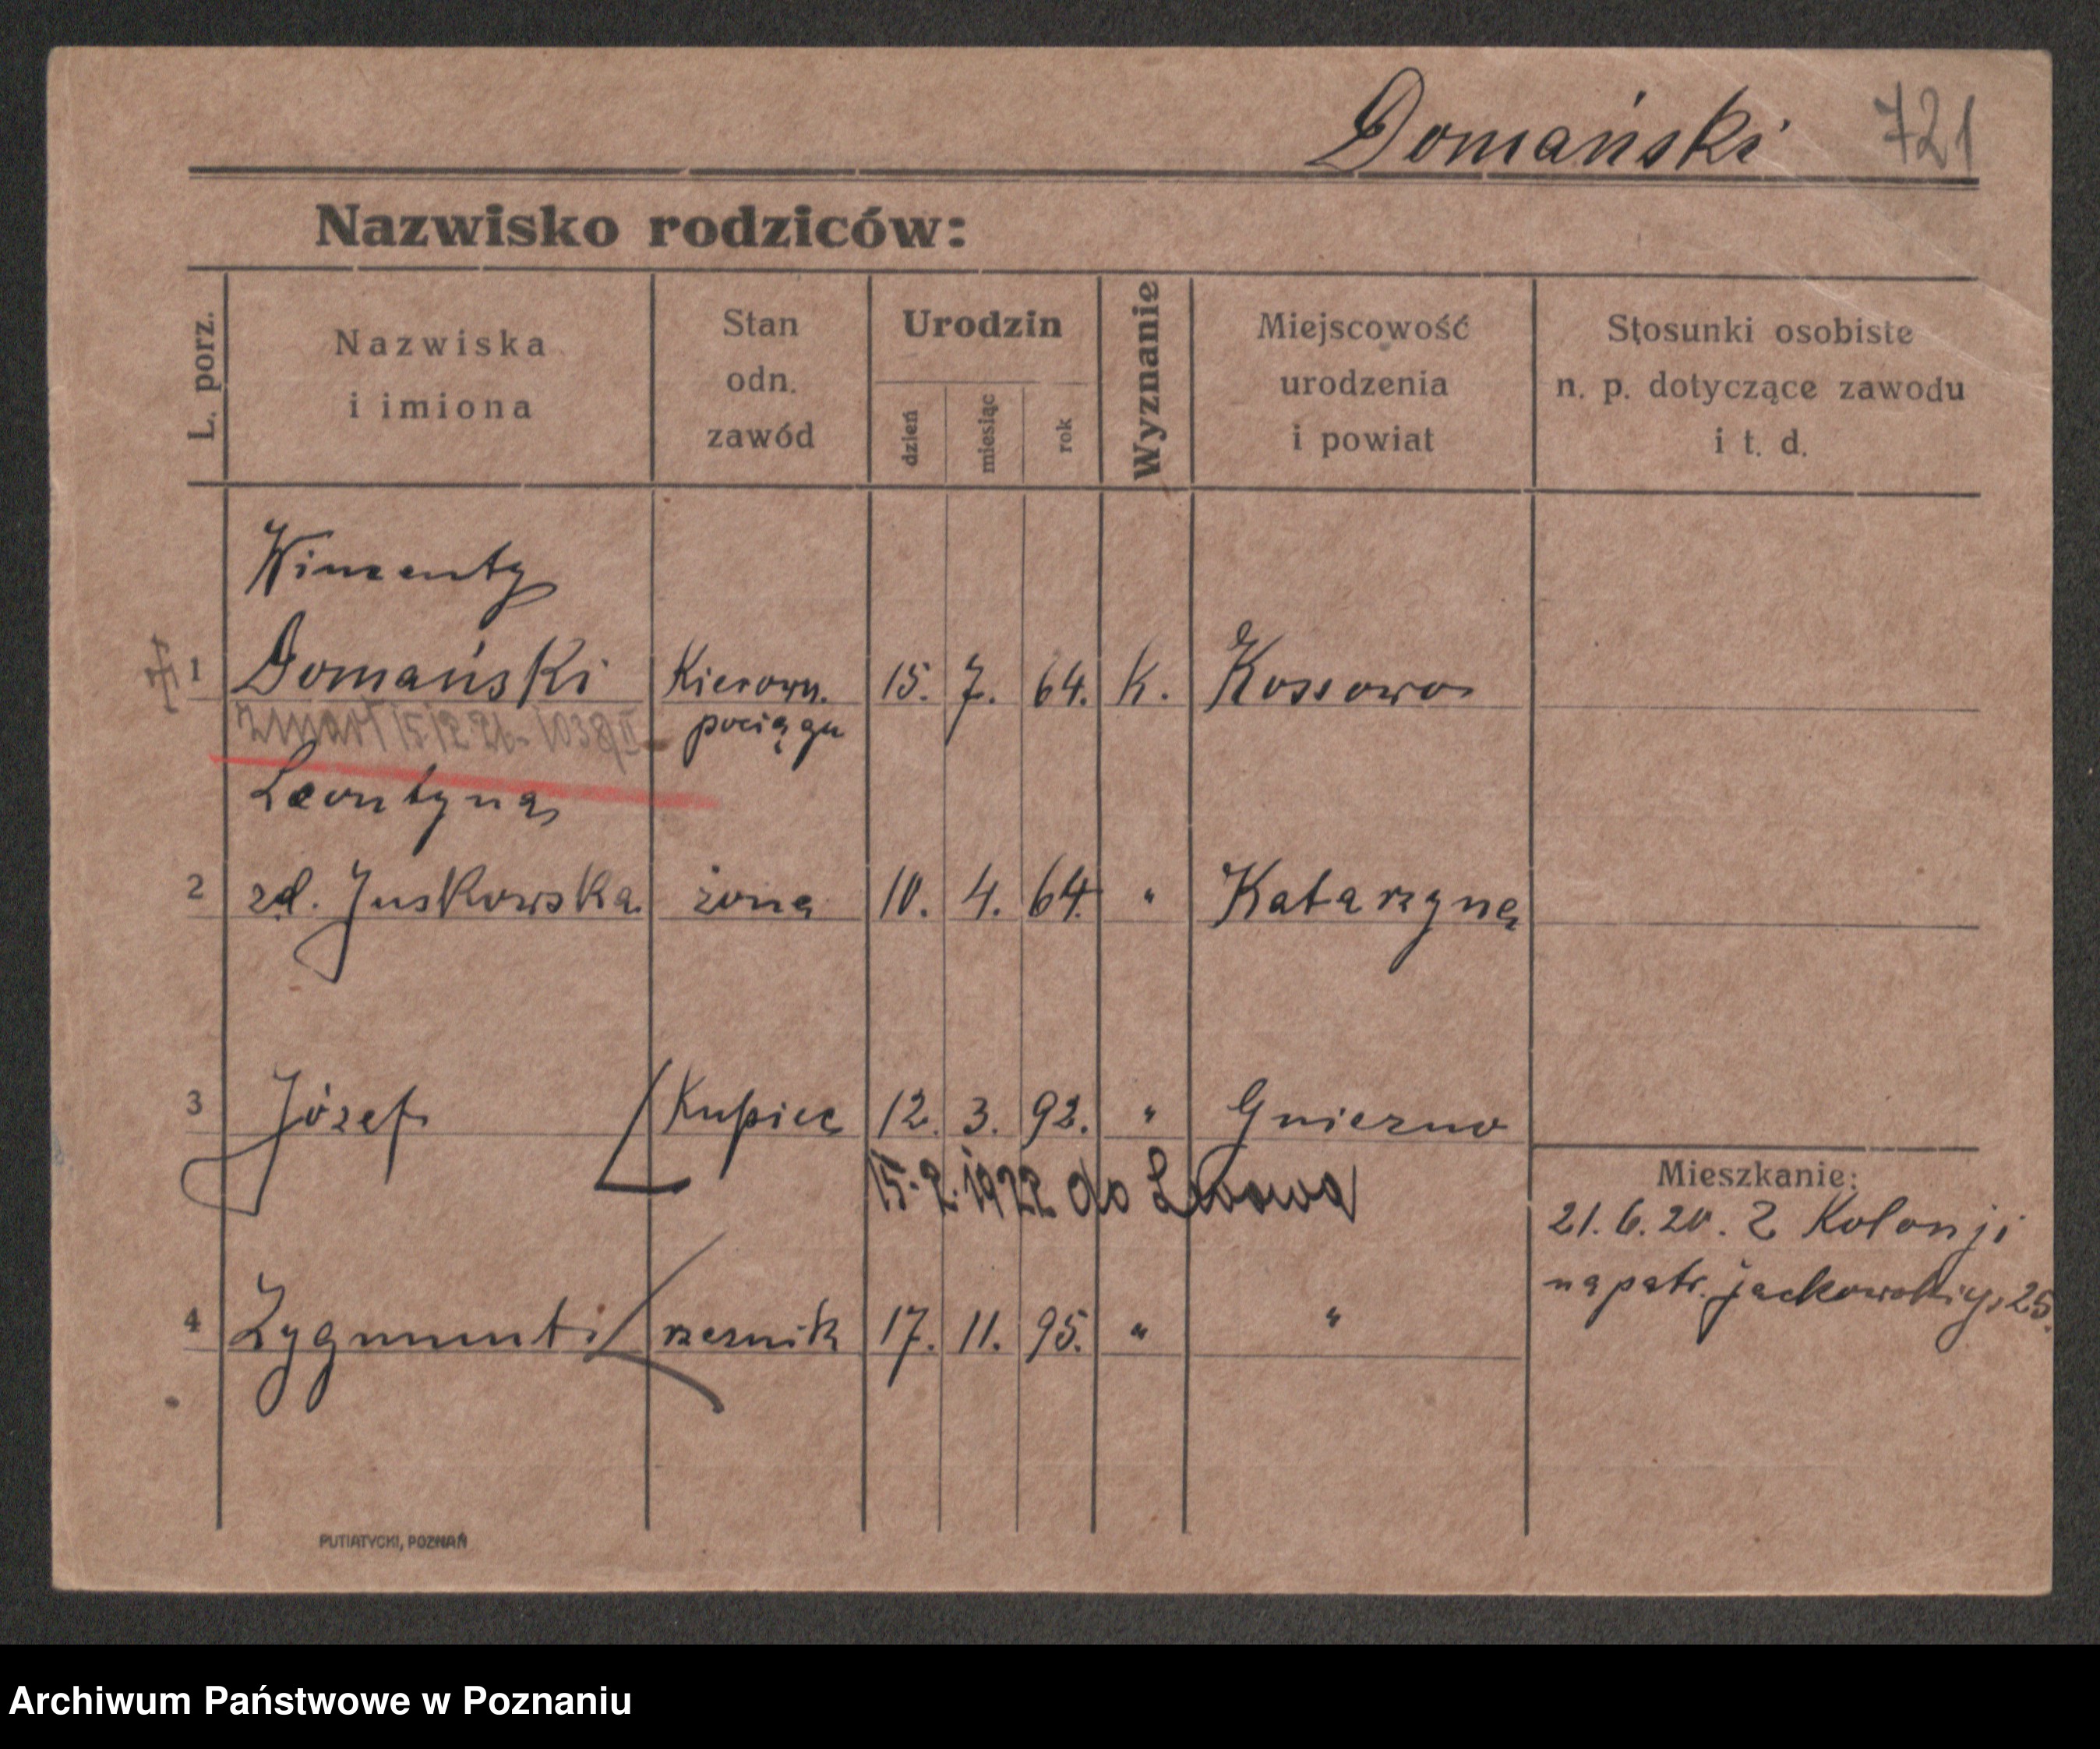 Domański 721
Nazwisko rodziców:
L. porz.
Nazwiska
i imiona
Stan
odn.
zawód
Urodzin
dzień
miesiąc
rok
Wyznanie
Miejscowość
urodzenia
i powiat
Stosunki osobiste
n. p. dotyczące zawodu
i t. d.
Wincenty
1 Domański Kierown. 15. 7. 64. K. Kossowo
pociągu
Zmarł 15 12 26 - 1038/II
Leontyna
2 zd. Juskowska żona 10. 4. 64. " Katarzyna
3 Józef Kupiec 12. 3. 92. " Gniezno
15. 2. 1922 do Lwowa
4 Zygmunt rzeźnik 17. 11. 95. " "
Mieszkanie:
21.6.20. Z Kolonji
na patr. Jackowskiego 25.
PUTIATYCKI, POZNAŃ
Archiwum Państwowe w Poznaniu